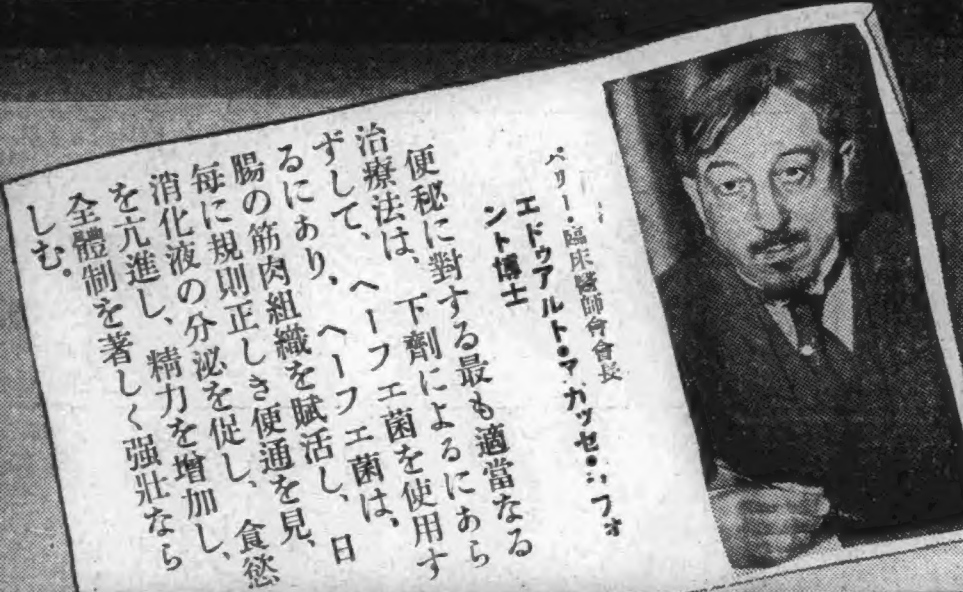 パリー・臨床醫師會會長
エドゥアルト・アカッセ・ジ・フォ
ント博士
便秘に對する最も適當なる
治療法は、下劑によるにあら
ずして、ヘーフェ菌を使用す
るにあり、ヘーフェ菌は、
腸の筋肉組織を賦活し、日
每に規則正しき便通を見、
消化液の分泌を促し、食慾
を亢進し、精力を增加し、
全體制を著しく强壯なら
しむ。